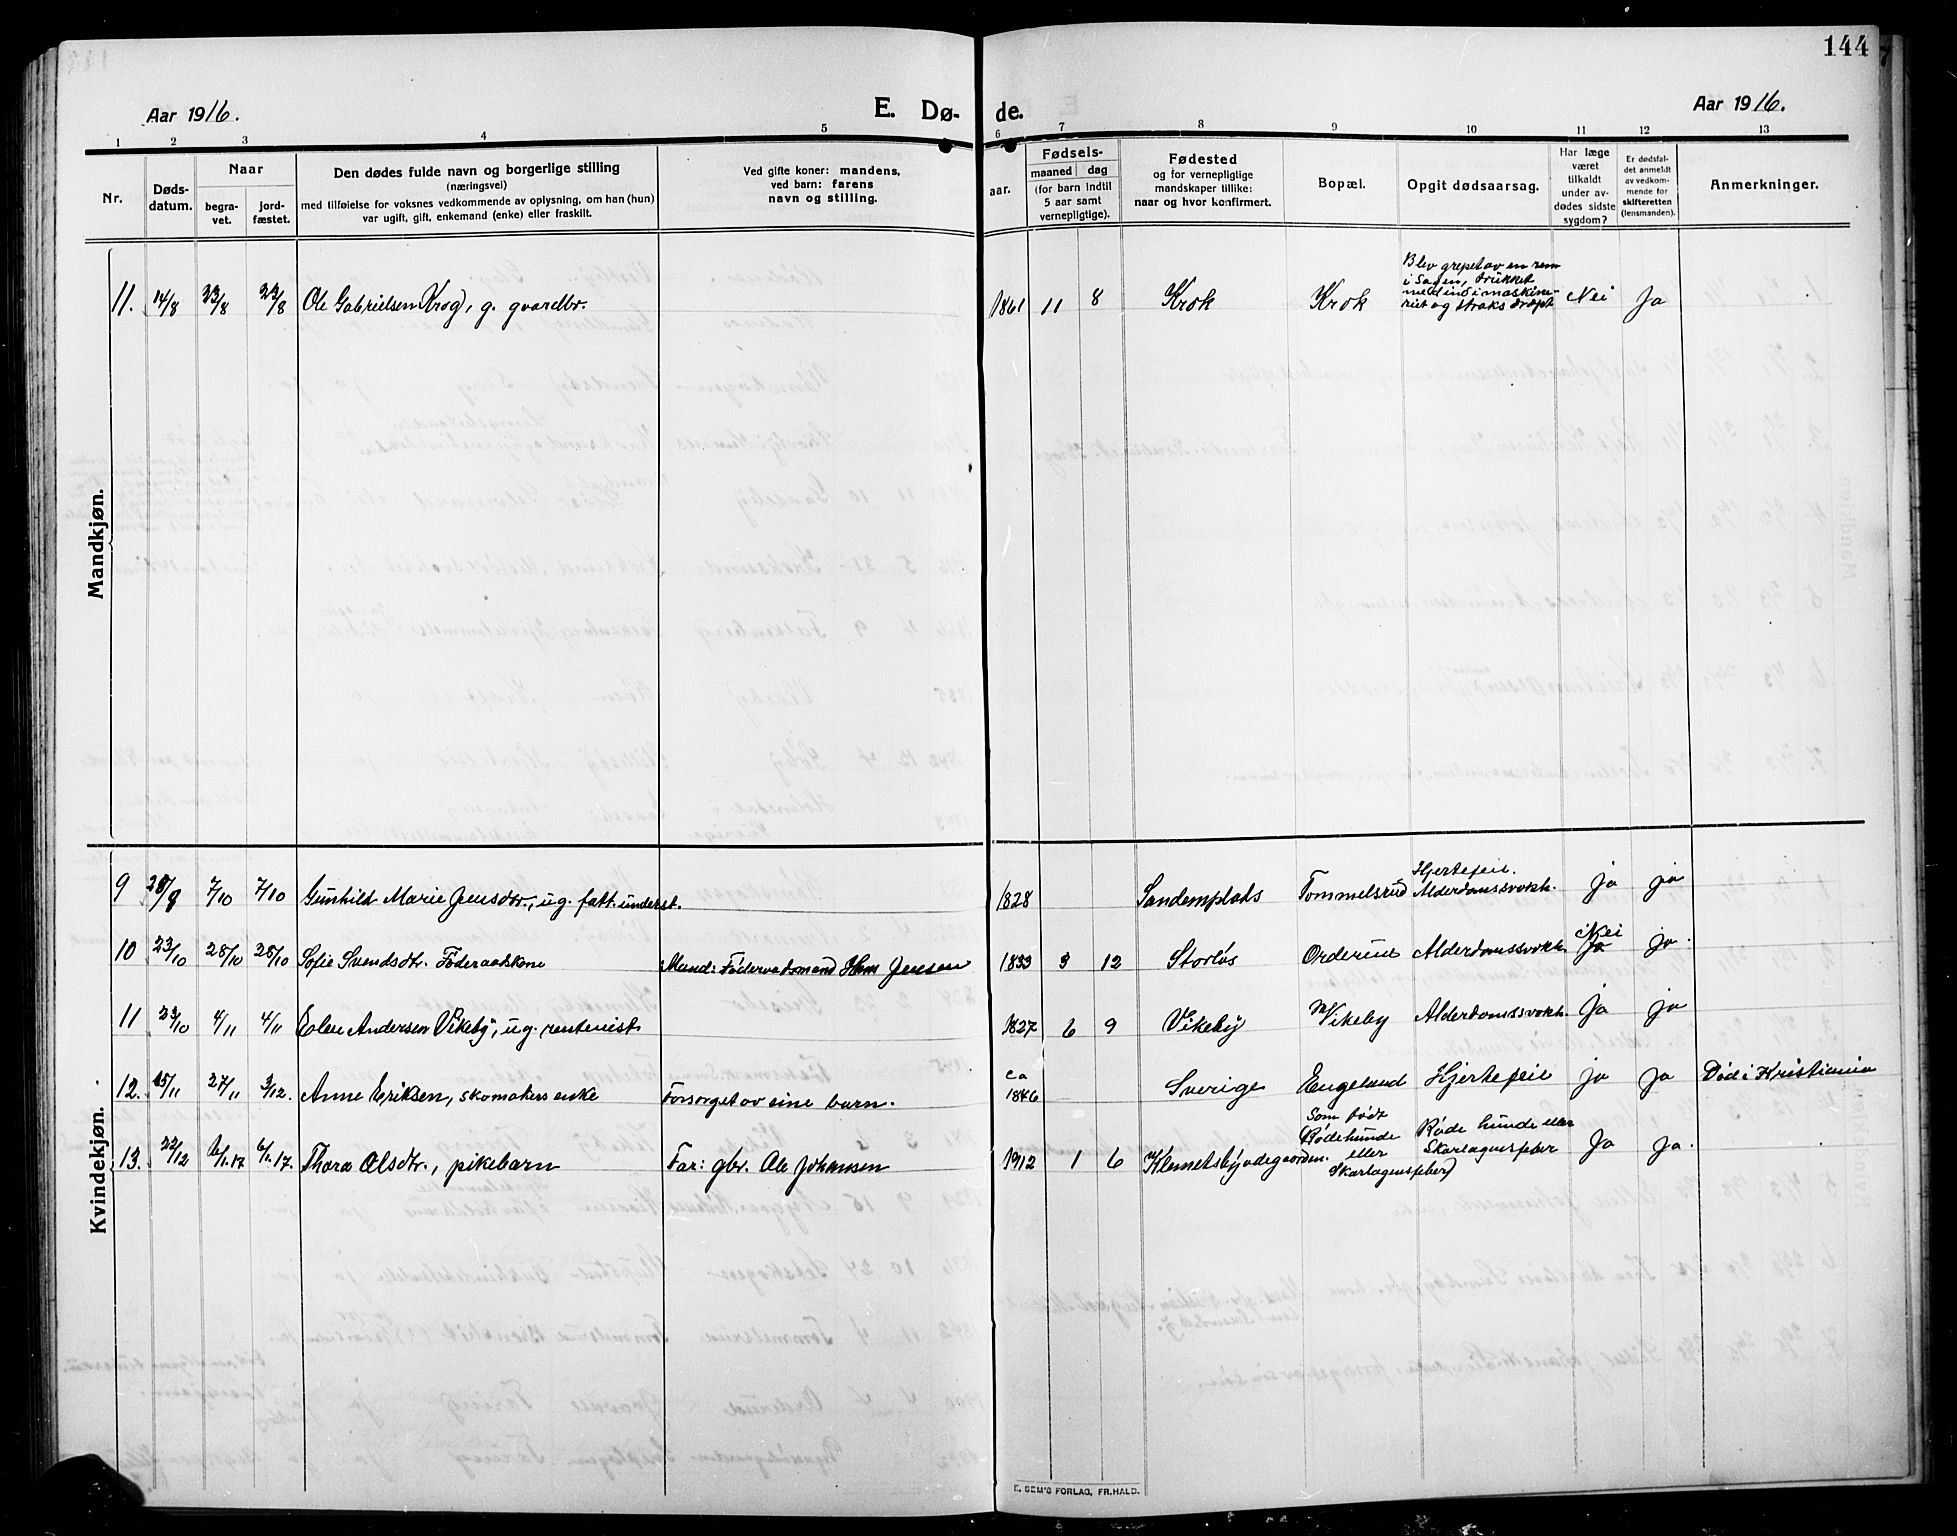 144
Aar 1916.
E. Dø-
de.
Aar 1916.
1 2 3 4 5 6 7 8 9 10 11 12 13
Nr.
Døds-
datum.
Naar
begra-
vet.
jord-
fæstet.
Den dødes fulde navn og borgerlige stilling
(næringsvei)
med tilføielse for voksnes vedkommende av oplysning, om han (hun)
var ugift, gift, enkemand (enke) eller fraskilt.
Ved gifte koner: mandens,
ved barn: farens
navn og stilling.
Fødsels-
aar.
maaned dag
(for barn indtil
5 aar samt
vernepligtige).
Fødested
og for vernepligtige
mandskaper tillike:
naar og hvor konfirmert.
Bopæl.
Opgit dødsaarsag.
Har læge
været
tilkaldt
under av-
dødes sidste
sygdom?
Er dødsfal-
det anmeldt
av vedkom-
mende for
skifteretten
(lensmanden).
Anmerkninger.
Mandkjøn.
11. 14/8 23/8 23/8 Ole Gabrielsen Krog, g. gvardbr. 1861 11 8 Krok Krok
Blev grepet av en rem
i Sagen, trukket
med ind i maskine-
riet og straks dræpt
Nei Ja
Kvindekjøn.
9 28/9 7/10 7/10 Gunhild Marie Jensdtr., ug. fatt. underst. 1828 Sandemplads Tommelsrud
Hjertefeil.
Alderdomssvakh. ja ja
10 23/10 28/10 28/10 Sofie Svendsdtr. Føderaadskone Mand: Føderaadsmand Hans Jensen 1833 3 12 Storløs Orderud Alderdomssvakh.
Nei
Ja ja.
11 23/10 4/11 4/11 Eolen Andersen Vikeby, ug. rentenist 1827 6 9 Vikeby Vikeby Alderdomssvakh. Ja ja
12. 15/11 27/11 3/12. Anne Eriksen, skomakers enke Forsørget av sine barn.
ca
1846 Sverige Engeland Hjertefeil ja Ja Død i Kristiania
13. 22/12 6/1.17 6/1.17. Thora Olsdtr., pikebarn Far: gbr. Ole Johansen 1912 1 6 Klemetsbyødegaarden.
Som født
(Rødehunde
eller
Skarlagensfeber)
Røde hunde eller
Skarlagensfeber
Ja Ja.
E. SEM'S FORLAG, FR.HALD.